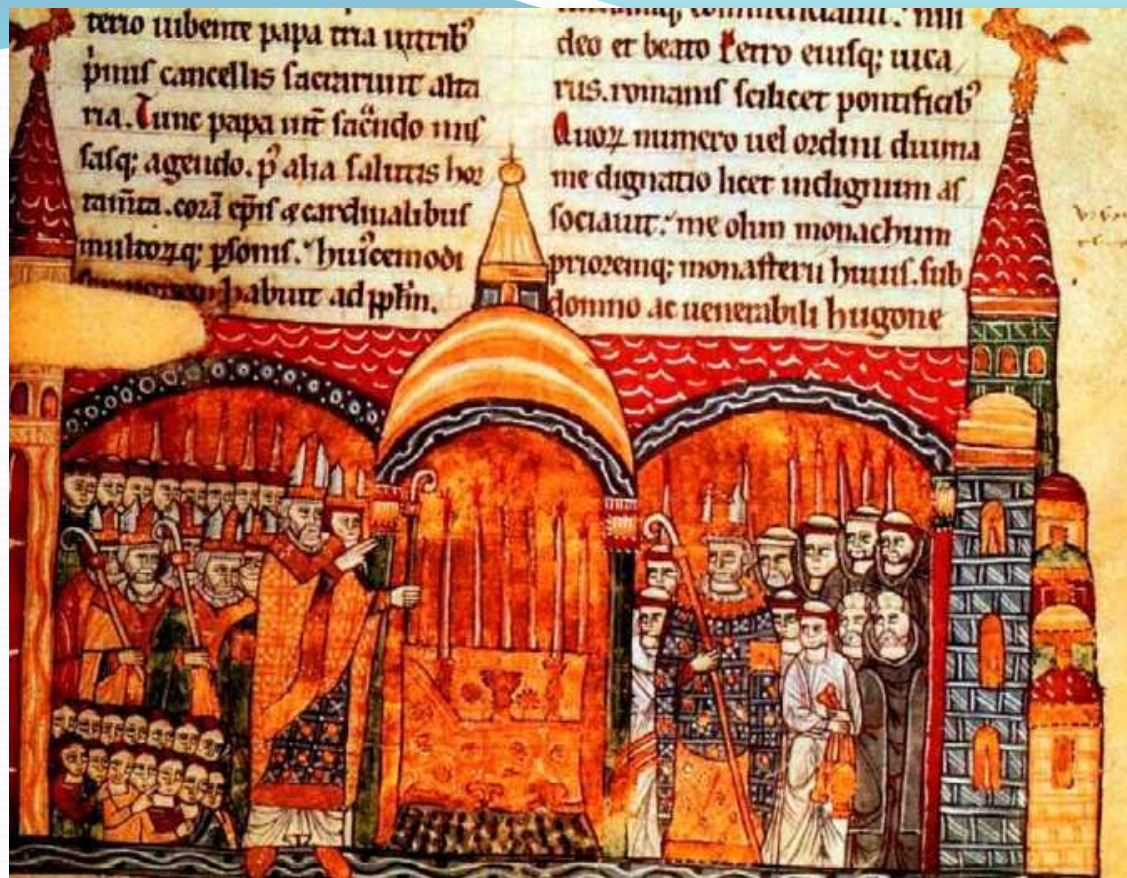 terio iubente papa tria uiitrib⁹
p̓mis cancellis sacrarunt alta
ria. Tunc papa int̄ sac̄ndo mis
sasq; agendo. p⁹ alia salutis hor
tam̄ta. corā ep̄is & cardinalibus
multorꝝq; p̲sonis. huiꝰcemodi
habuit ad pp̄lm.
deo et beato Petro eiusq; uica
rus. romanis scilicet pontificib⁹
Quorꝝ numero uel ordini diuina
me dignatio licet indignum as
sociauit. me olim monachum
prioremq; monasterii huius. sub
domno ac uenerabili hugone